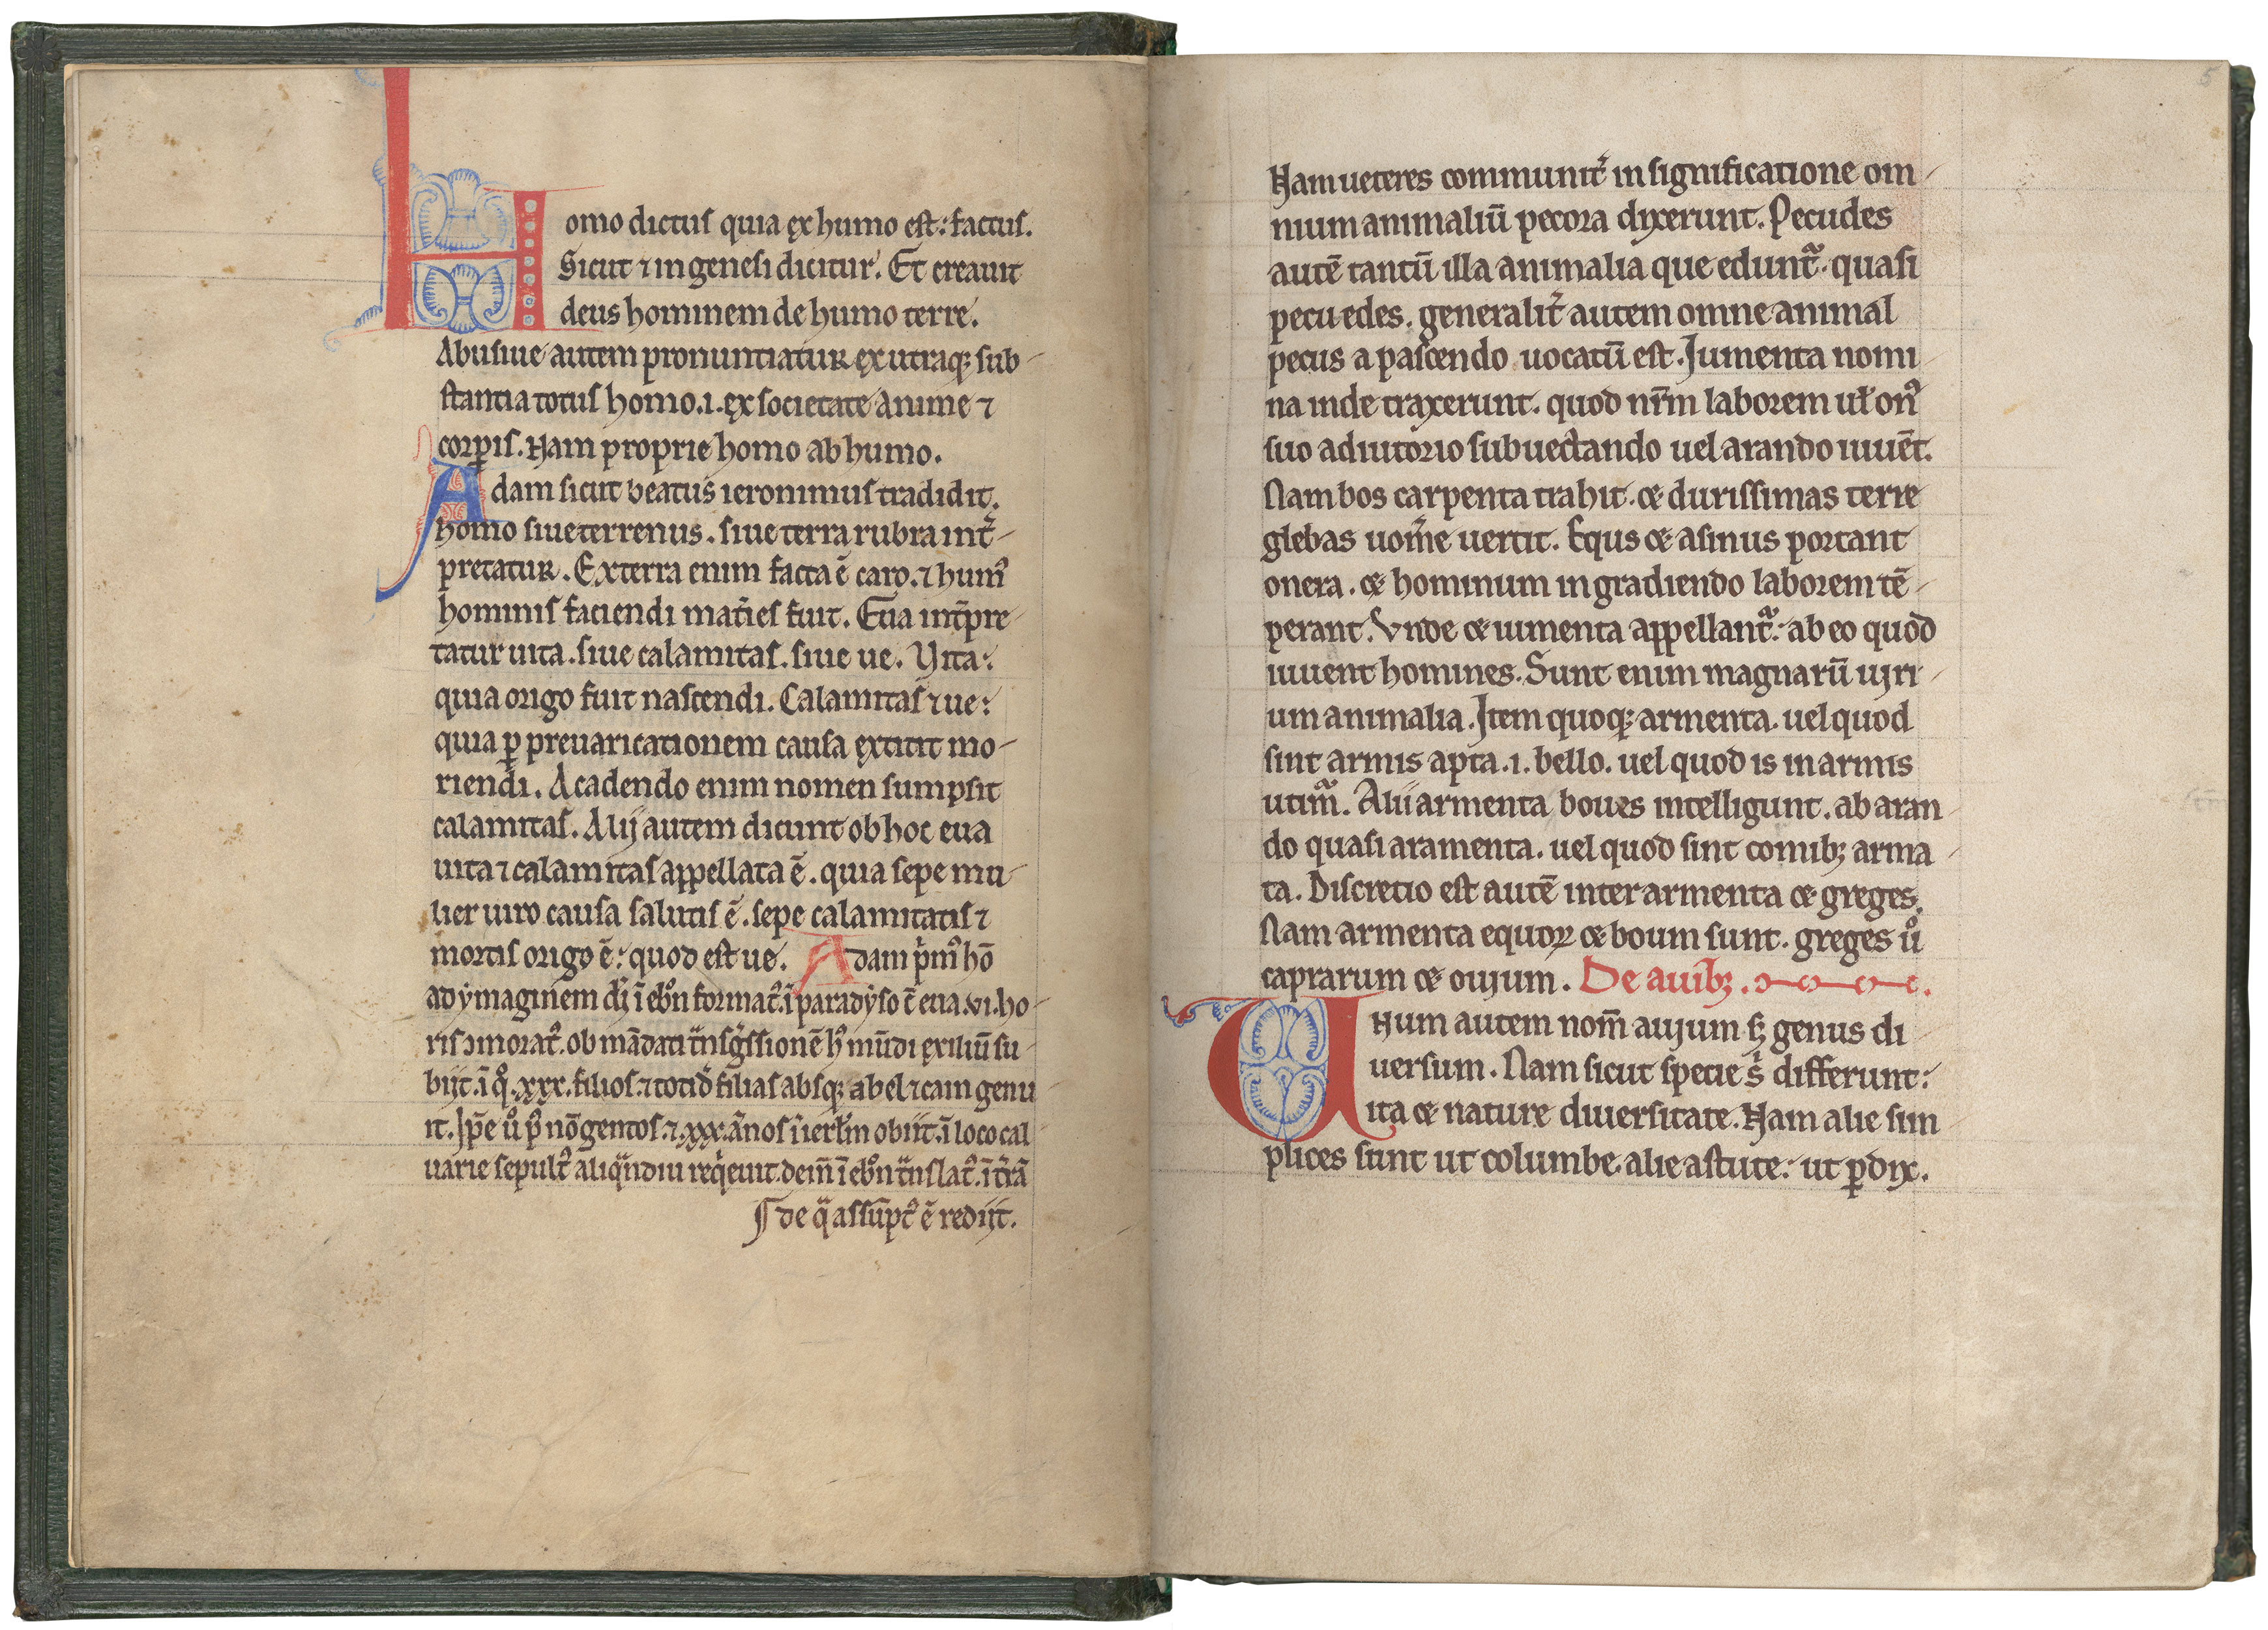 Homo dictus quia ex humo est: factus.
Sicut ⁊ in genesi dicitur. Et creauit
deus hominem de humo terre.
Abusiue autem pronuntiatur ex utraqꝫ sub
stantia totus homo .i. ex societate anime ⁊
corꝑis. Nam proprie homo ab humo.
Adam sicut beatus ieronimus tradidit.
homo siue terrenus. siue terra rubra int̾
pretatur. Ex terra enim facta ē caro. ⁊ humꝰ
hominis faciendi mat̾ies fuit. Eua int̾pre
tatur uita. siue calamitas. siue ue. Vita:
quia origo fuit nascendi. Calamitas ⁊ ue:
quia ꝑ preuaricationem causa extitit mo
riendi. A cadendo enim nomen sumpsit
calamitas. Alij autem dicunt ob hoc eua
uita ⁊ calamitas appellata ē. quia sepe mu
lier uiro causa salutis ē. sepe calamitatis ⁊
mortis origo ē: quod est ue. Adam p̾mꝰ hō
ad ymaginem di ī ebrōn formatꝰ. ī paradyso cū eua .vi. ho
ris ɔmoratꝰ. ob mādati tͣnsgͥssionē hꝰ mūdi exiliū su
bijt. ī qͦ .xxx. filios. ⁊ totid̄ filias absqꝫ abel ⁊ cain genu
it. Ip̄e uͦ pꝰ nōgentos. ⁊ .xxx. ānos ī ierl̄m obiit. ī loco cal
uarie sepultꝰ aliqͣndiu reqͥeuit. dem̄ ī ebrōn tͣnslatꝰ. ī t̾rā
¶ de qͣ assūptꝰ ē redijt.
5
Nam ueteres communit̾ in significatione om
nium animaliū pecora dixerunt. Pecudes
autē tantū illa animalia que eduntᷓ. quasi
pecuedes. generalit̾ autem omne animal
pecus a pascendo uocatū est. Jumenta nomi
na inde traxerunt. quod nr̄m laborem ul̄ onꝰ
suo adiutorio subuectando uel arando iuuēt.
Nam bos carpenta trahit. & durissimas terre
glebas uom̾e uertit. Equs & asinus portant
onera. & hominum in gradiendo laborem tē
perant. Vnde & iumenta appellantᷓ: ab eo quod
iuuent homines. Sunt enim magnarū uiri
um animalia. Item quoqꝫ armenta. uel quod
sint armis apta .i. bello. uel quod is in armis
utimᷓ. Alii armenta boues intelligunt. ab aran
do quasi aramenta. uel quod sint cornibꝫ arma
ta. Discretio est autē inter armenta & greges.
Nam armenta equoꝝ & boum sunt. greges uͦ
caprarum & ouium. De auibꝫ.
Vnum autem nom̄ auium sꝫ genus di
uersum. Nam sicut specie sͥ differunt:
ita & nature diuersitate. Nam alie sim
plices sunt ut columbe. alie astute: ut ꝑdix.